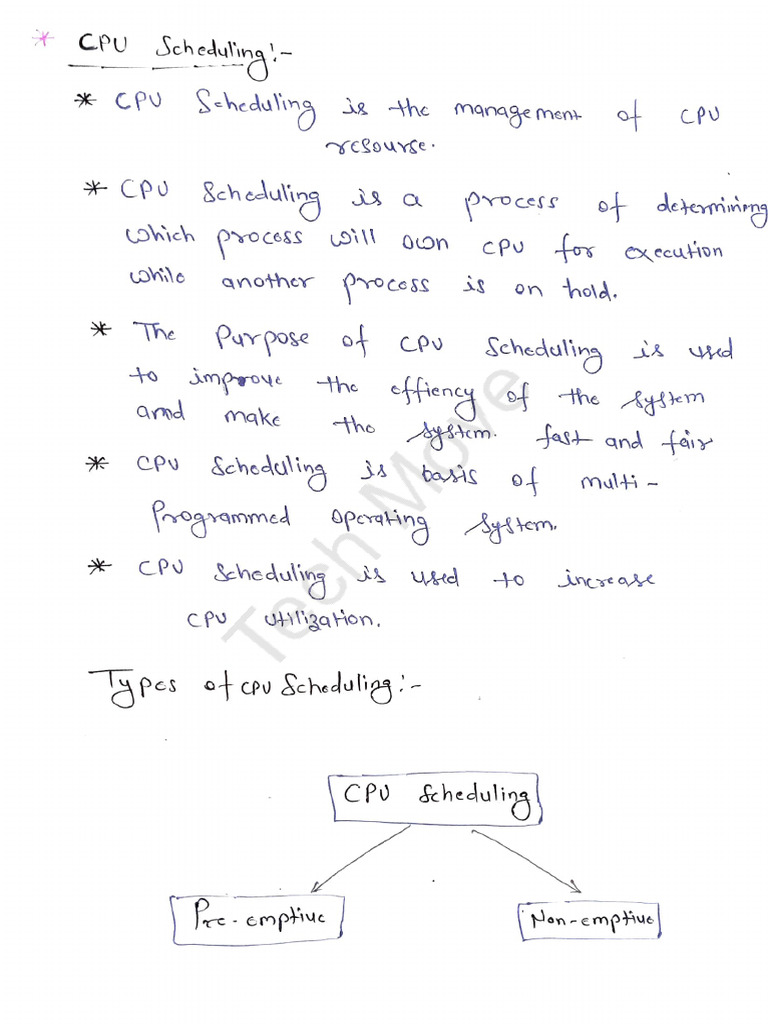 * CPU Scheduling:-
* CPU Scheduling is the management of CPU
resourse.
* CPU Scheduling is a process of determining
which process will own CPU for execution
while another process is on hold.
* The Purpose of CPU Scheduling is used
to improve the effiency of the system
and make the system. fast and fair
* CPU Scheduling is basis of multi-
Programmed operating system.
* CPU Scheduling is used to increase
CPU utilization.
Tech Move
Types of CPU Scheduling:-
CPU Scheduling
Pre-emptive
Non-emptive